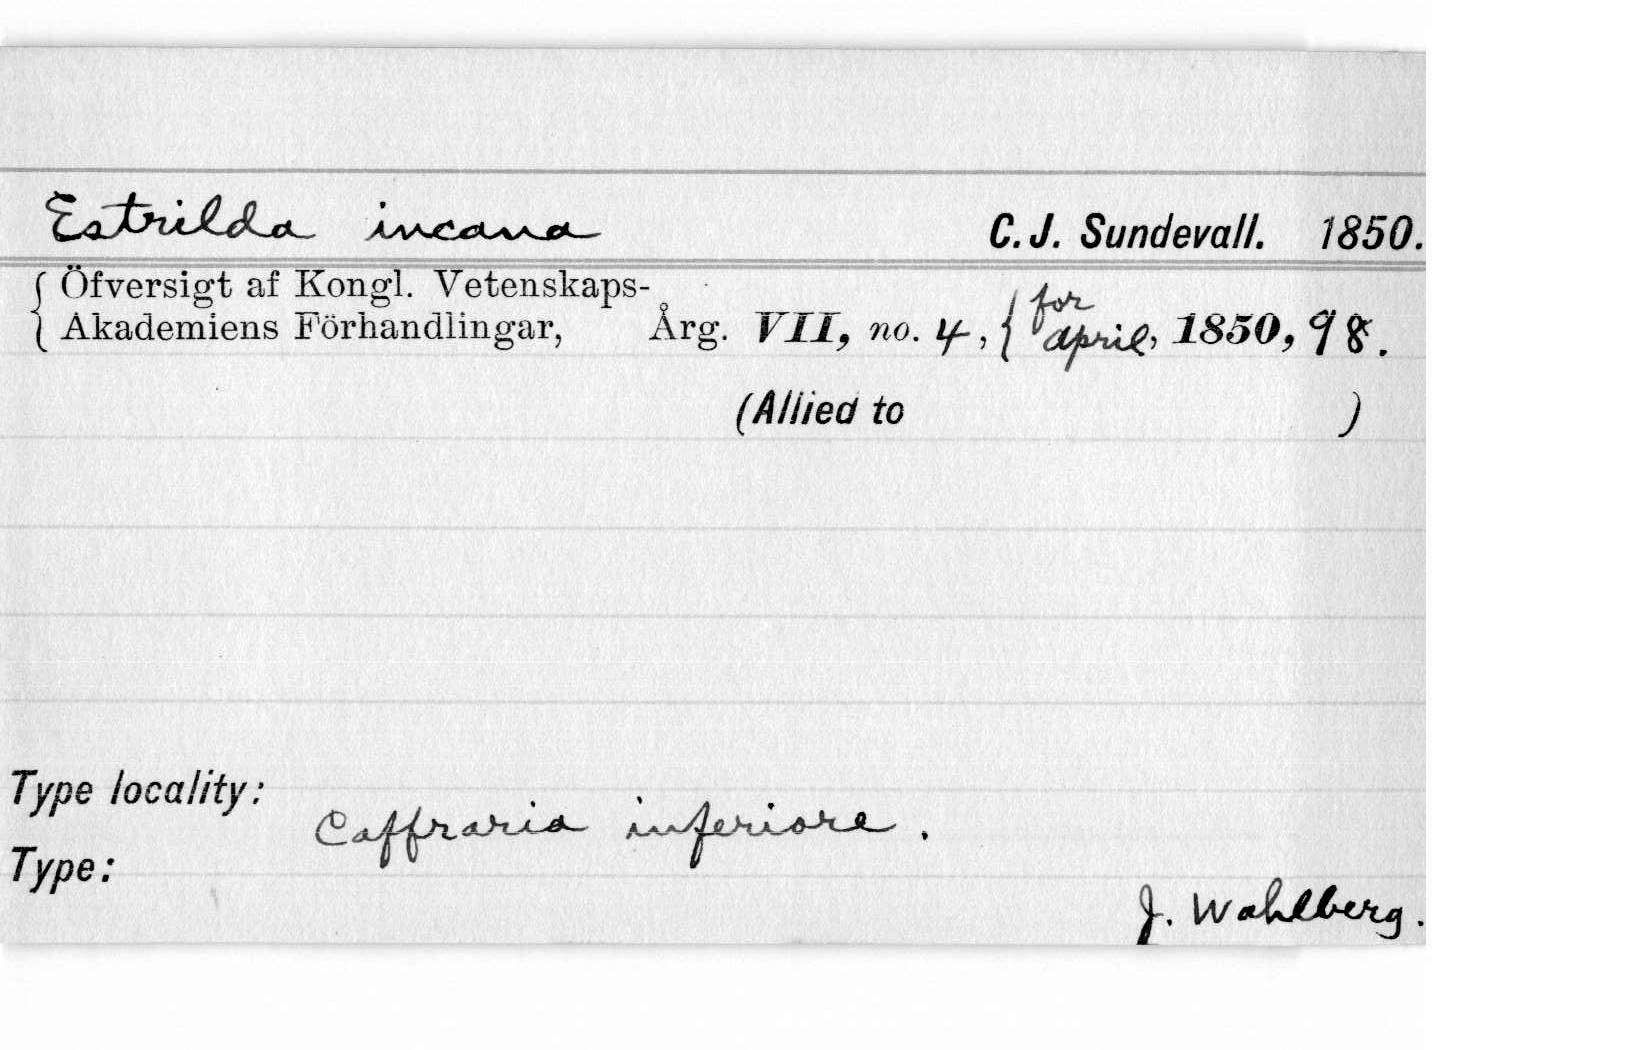 Estrilda incana C. J. Sundevall. 1850.
Öfversigt af Kongl. Vetenskaps-
Akademiens Förhandlingar, Årg. VII, no. 4, for april, 1850, 98.
(Allied to )
Type locality:
Caffraria inferiore.
Type:
J. Wahlberg.